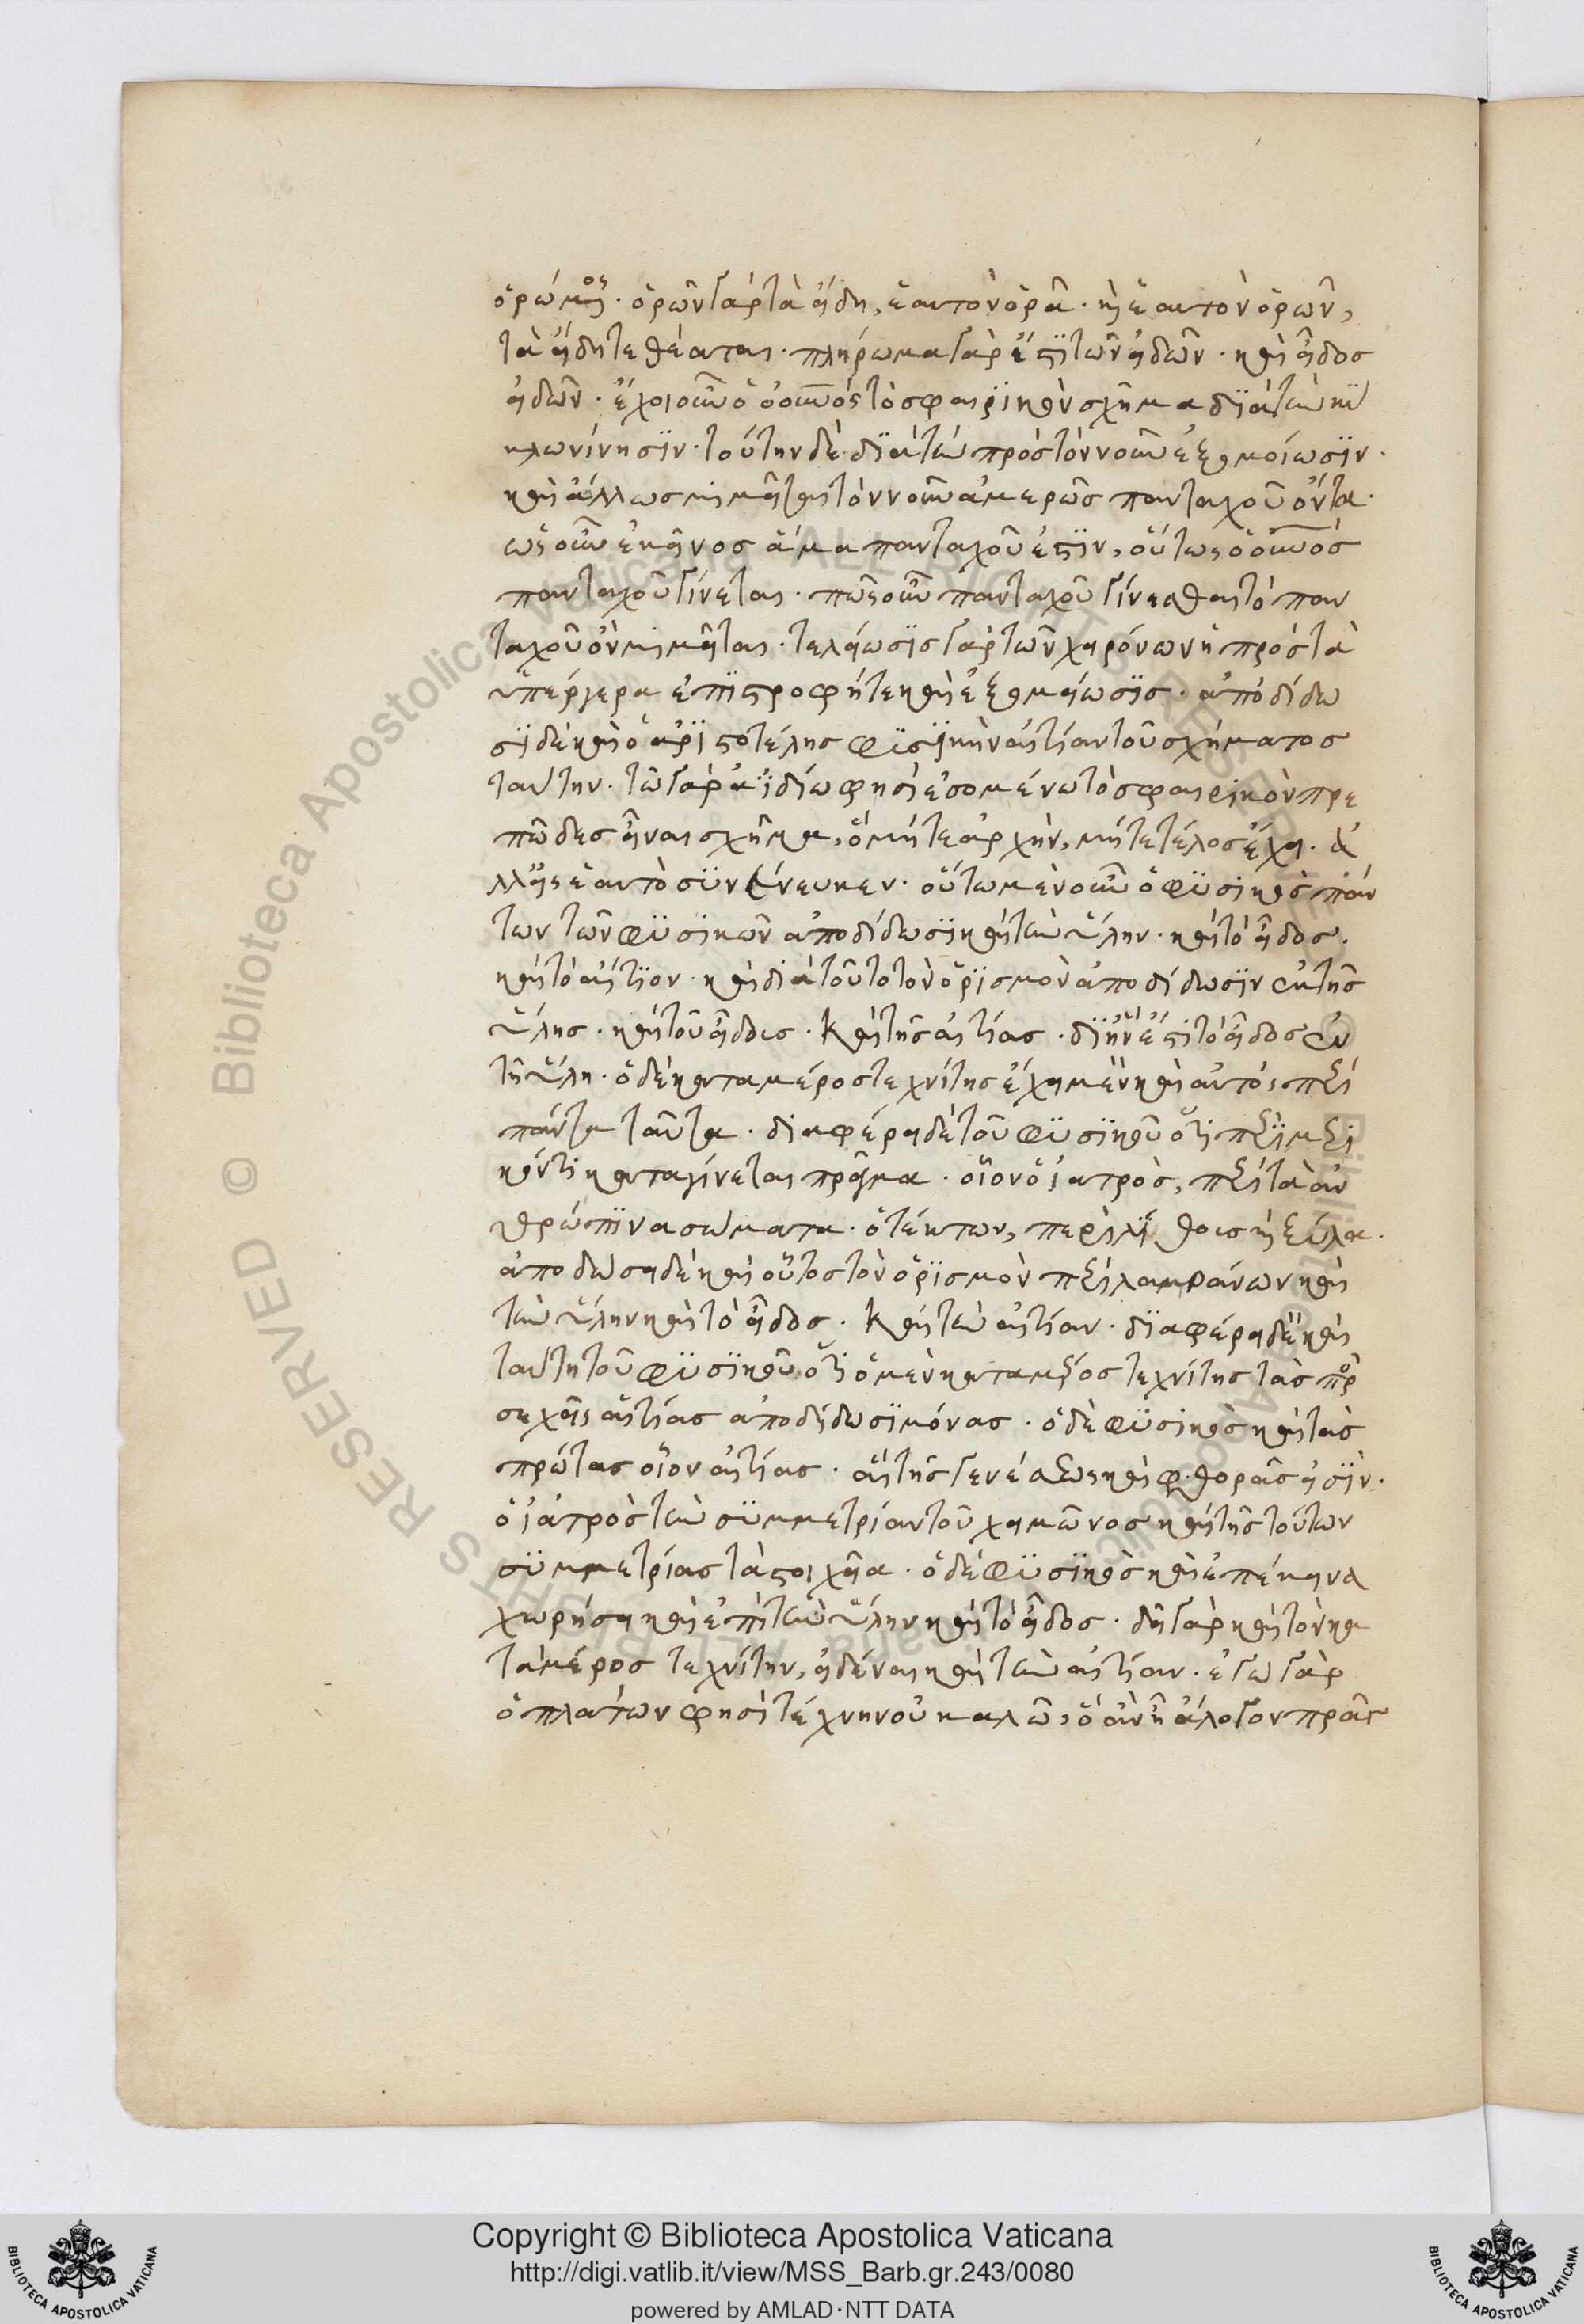 ὁρώμενος. ὁρῶν γὰρ τὰ εἴδη, ἑαυτὸν ὁρᾶ. καὶ ἑαυτὸν ὁρῶν,
τὰ εἴδη τεθέαται. πλήρωμα γάρ ἐστι τῶν εἰδῶν. καὶ εἶδος
εἰδῶν. ἔχει οὖν ὁ οὐνὸς τὸ σφαιρικὸν σχῆμα διὰ τὴν κύ
κλω κίνησιν. ταύτην δὲ διὰ τὴν πρὸς τὸν νοῦν ἐξομοίωσιν.
καὶ ἄλλως μιμεῖται τὸν νοῦν ἀμερῶς πανταχοῦ ὄντα.
ὡς οὖν ἐκεῖνος ἅμα πανταχοῦ ἐστιν, οὕτως ὁ οὐνὸς
πανταχοῦ γίνεται. πῶς οὖν πανταχοῦ γίνεσθαι τὸ παν
ταχοῦ ὂν μιμεῖται. τελείωσις γὰρ τῶν χειρόνων ἡ πρὸς τὰ
ὑπέρτερα ἐπιστροφή τε καὶ ἐξομοίωσις. ἀποδίδω
σι δὲ καὶ ὁ ἀριστοτέλης φυσικὴν αἰτίαν τοῦ σχήματος
ταύτην. τῶ γὰρ ἀϊδίω φησὶ ἐσομένω τὸ σφαιρικὸν πρε
πῶδες εἶναι σχῆμα, ὃ μήτε ἀρχὴν, μήτε τέλος ἔχει. ἀ
λλ' εἰς ἑαυτὸ συννένευκεν. οὕτω μὲν οὖν ὁ φυσικὸς πάν
των τῶν φυσικῶν ἀποδίδωσι καὶ τὴν ὕλην. καὶ τὸ εἶδος.
καὶ τὸ αἴτιον. καὶ διὰ τοῦτο τὸν ὁρισμὸν ἀποδίδωσιν ἐκ τῆς
ὕλης. καὶ τοῦ εἴδους. καὶ τῆς αἰτίας. δι' ἣν ἐστι τὸ εἶδος ἐν
τῆ ὕλη. ὁ δὲ κατὰ μέρος τεχνίτης ἔχει μὲν καὶ αὐτὸς περὶ
πάντα ταῦτα. διαφέρει δὲ τοῦ φυσικοῦ ὅτι περὶ μερι
κόν τι καταγίνεται πρᾶγμα. οἷον ὁ ἰατρὸς, περὶ τὰ ἀν
θρώπινα σώματα. ὁ τέκτων, περὶ λίθους καὶ ξύλα.
ἀποδώσει δὲ καὶ οὗτος τὸν ὁρισμὸν περιλαμβάνων καὶ
τὴν ὕλην καὶ τὸ εἶδος. καὶ τὴν αἰτίαν. διαφέρει δὲ καὶ
ταύτη τοῦ φυσικοῦ ὅτι ὁ μὲν κατὰ μέρος τεχνίτης τὰς προ
σεχεῖς αἰτίας ἀποδίδωσι μόνας. ὁ δὲ φυσικὸς καὶ τὰς
πρώτας οἷον αἰτίας. αἳ τῆς γενέσεως καὶ φθορᾶς εἰσιν.
ὁ ἰατρὸς τὴν συμμετρίαν τοῦ χειμῶνος καὶ τῆς τούτων
συμμετρίας τὰ στοιχεῖα. ὁ δὲ φυσικὸς καὶ ἐπέκεινα
χωρήσει καὶ ἐπὶ τὴν ὕλην καὶ τὸ εἶδος. δεῖ γὰρ καὶ τὸν κα
τὰ μέρος τεχνίτην, εἰδέναι καὶ τὴν αἰτίαν. ἐγὼ γὰρ
ὁ πλάτων φησὶ τέχνην οὐ καλῶ, ὃ ἂν ἦ ἄλογον πρᾶγ